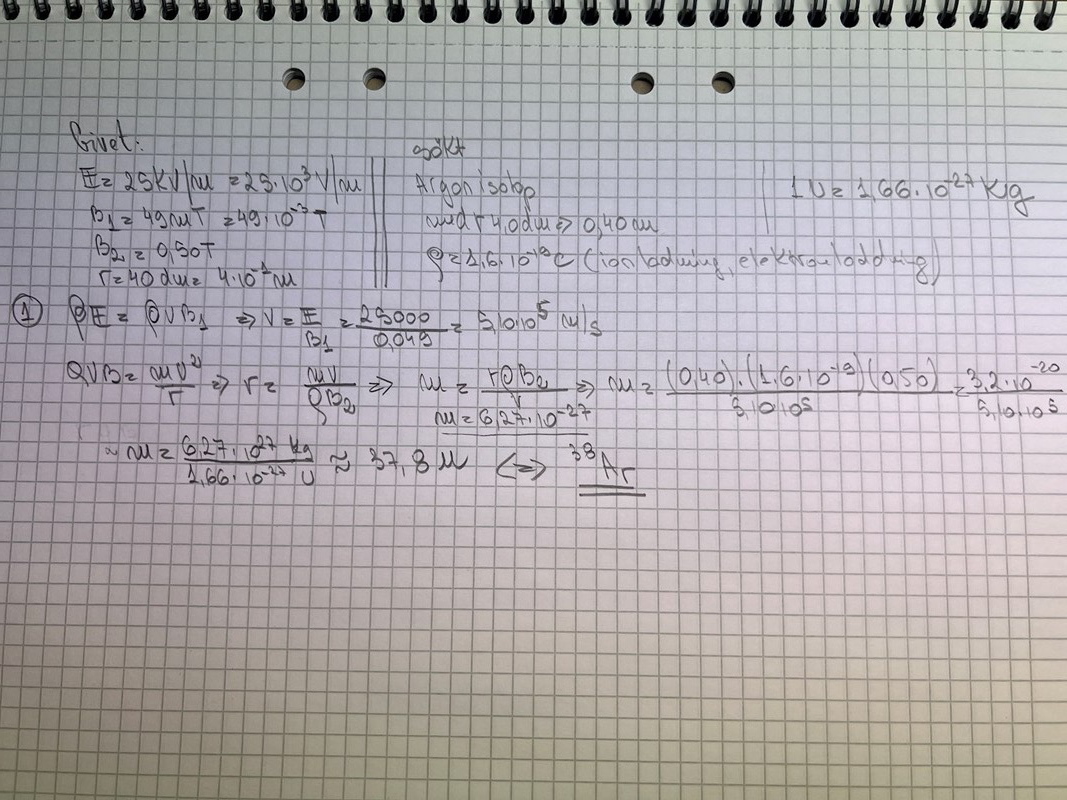 Givet:
E = 25kV/m = 25·10³ V/m
B₁ = 49mT = 49·10⁻³ T
B₂ = 0,50T
r = 40 dm = 4·10⁻¹ m
sökt
Argonisotop
med r 4,0dm => 0,40m
Q = 1,6·10⁻¹⁹ C (jonladdning, elektronladdning)
1 U = 1,66·10⁻²⁷ Kg
① QE = QVB₁ => V = E/B₁ = 25000/0,049 = 5,10·10⁵ m/s
QVB = mv²/r => r = mv/QB₂ => m = rQB₂/v => m = (0,40)·(1,6·10⁻¹⁹)(0,50)/5,10·10⁵ = 3,2·10⁻²⁰/5,10·10⁵
m = 6,27·10⁻²⁷
m = 6,27·10²⁷ kg/1,66·10⁻²⁷ U ≈ 37,8 u <=> ³⁸Ar